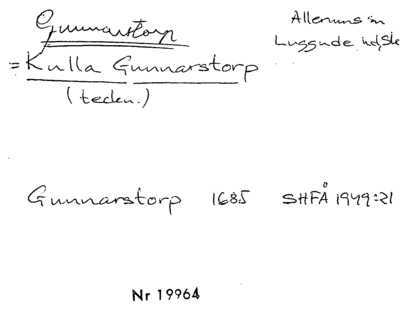 Gunnarstorp
= Kulla Gunnarstorp
(teckn.)
Allerums sn
Luggude hd, Sk
Gunnarstorp 1685 SHFÅ 1949:21
Nr 19964